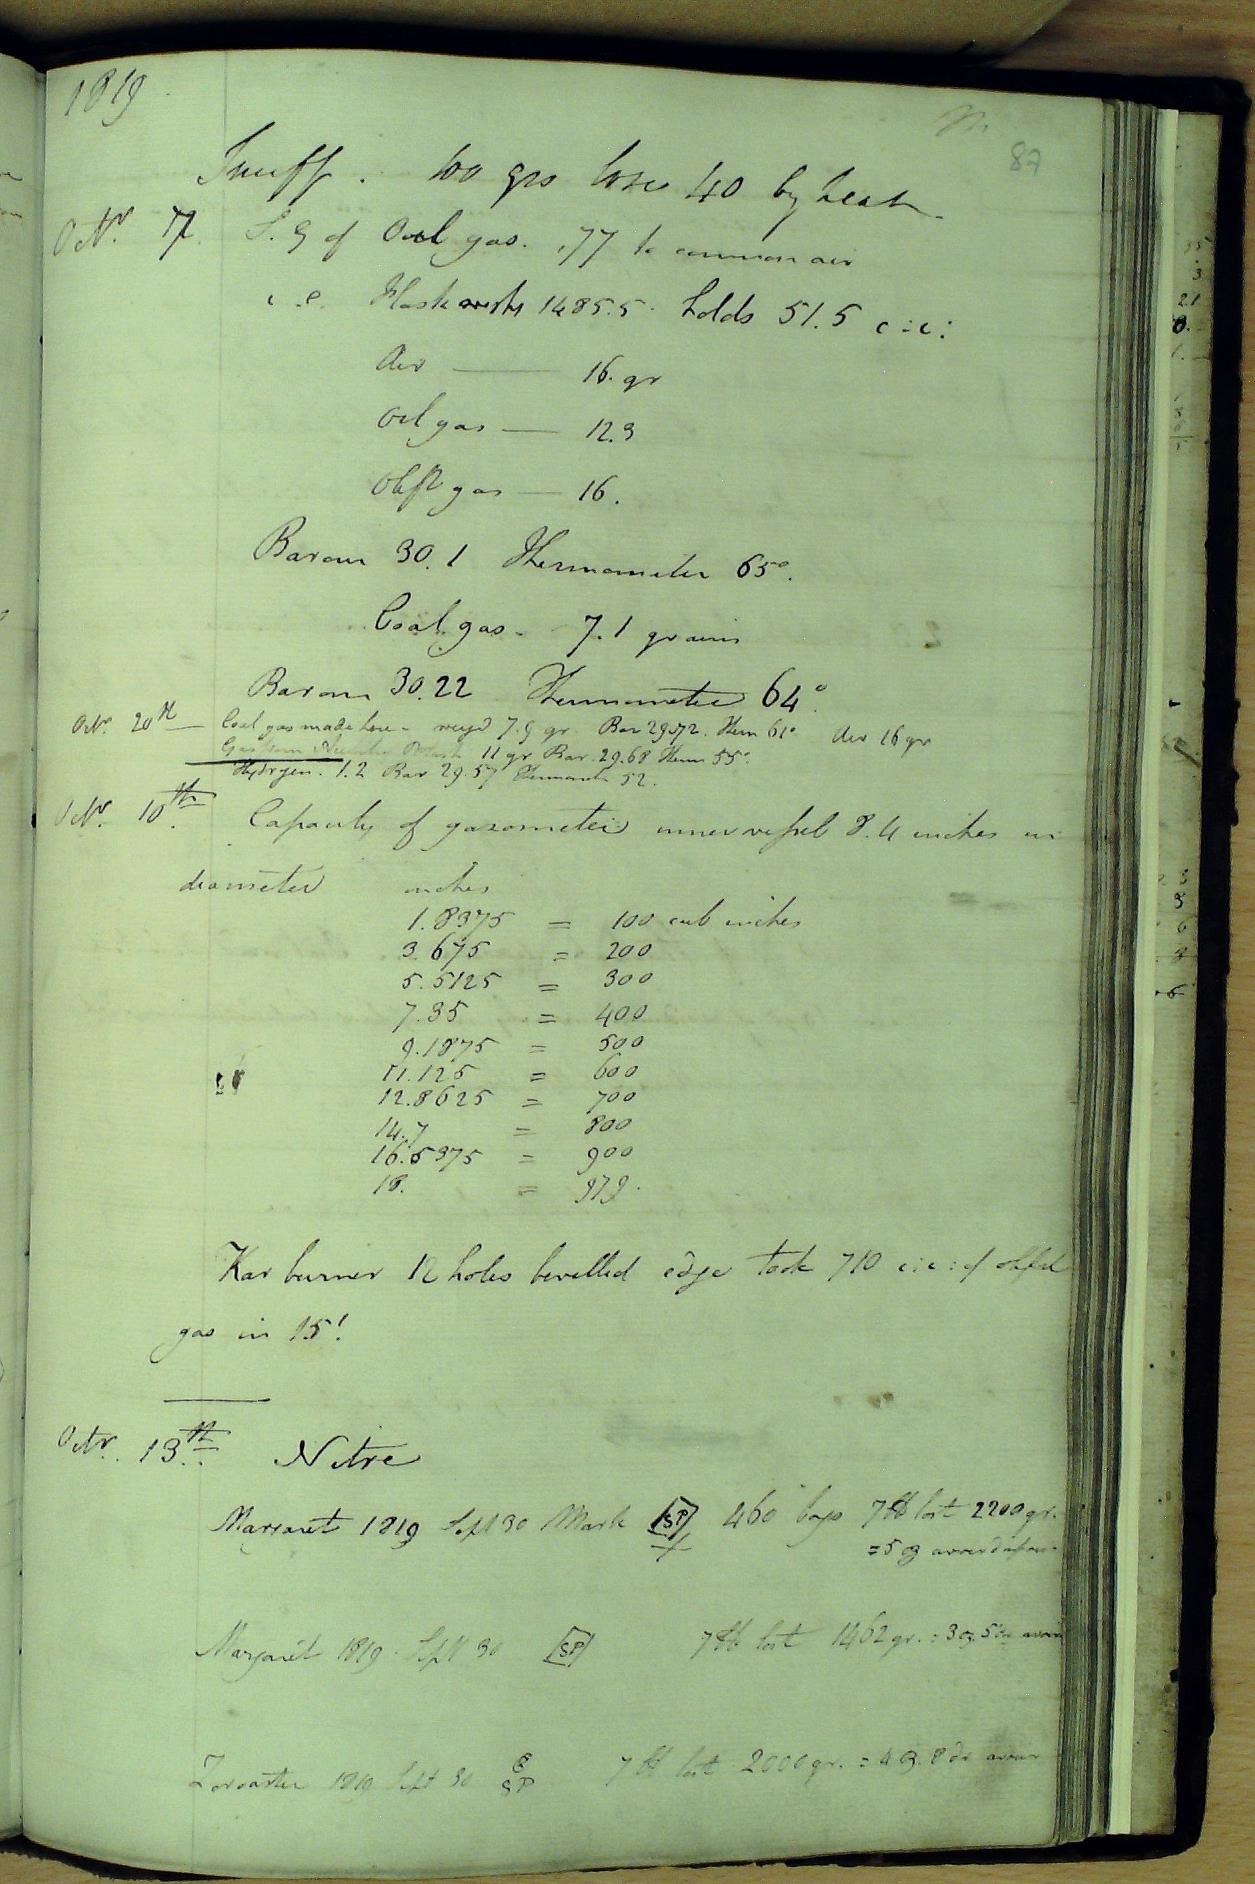 1819
87
Snuff. 100 grs lose 40 by heat
Octr. 7th. S.G of Oil gas. .77 to common air
i.e. Flask weighs 1485.5. holds 51.5 c:i:
Air — 16. gr
Oil gas — 12.3
Oleft gas — 16.
Barom 30.1 Thermometer 65°.
Coal gas - 7.1 grains
Barom 30.22 Thermometer 64°.
Octr. 20th — Coal gas made here - weigd 7.9 gr. Bar 29.72. Therm 61° Air 16 gr
Gas from 11 gr Bar. 29.68 Therm 55°.
Hydrogen. 1.2 Bar 29.57 Thermometer 52.
Octr. 10th. Capacity of gazometer inner vessel 8.4 inches in
diameter inches
1.8375 = 100 cub inches
3.675 = 200
5.5125 = 300
7.35 = 400
9.1875 = 500
11.125 = 600
12.8625 = 700
14.7 = 800
16.5375 = 900
18. = 979.
burner 12 holes bevelled edge took 710 c:i: of olefiel
gas in 15'.
Octr. 13th. Nitre
Margaret 1819 Sept 30 Mark SP 460 bags 7 lb lost 2200 gr.
= 5 oz avoirdupois
Margaret 1819. Sept 30 SP 7 lb lost 1462 gr. = 3 oz 5 avoir
1819 Sept 30 SP 7 lb lost 2000 gr. = 4 oz. 8 dr avoir